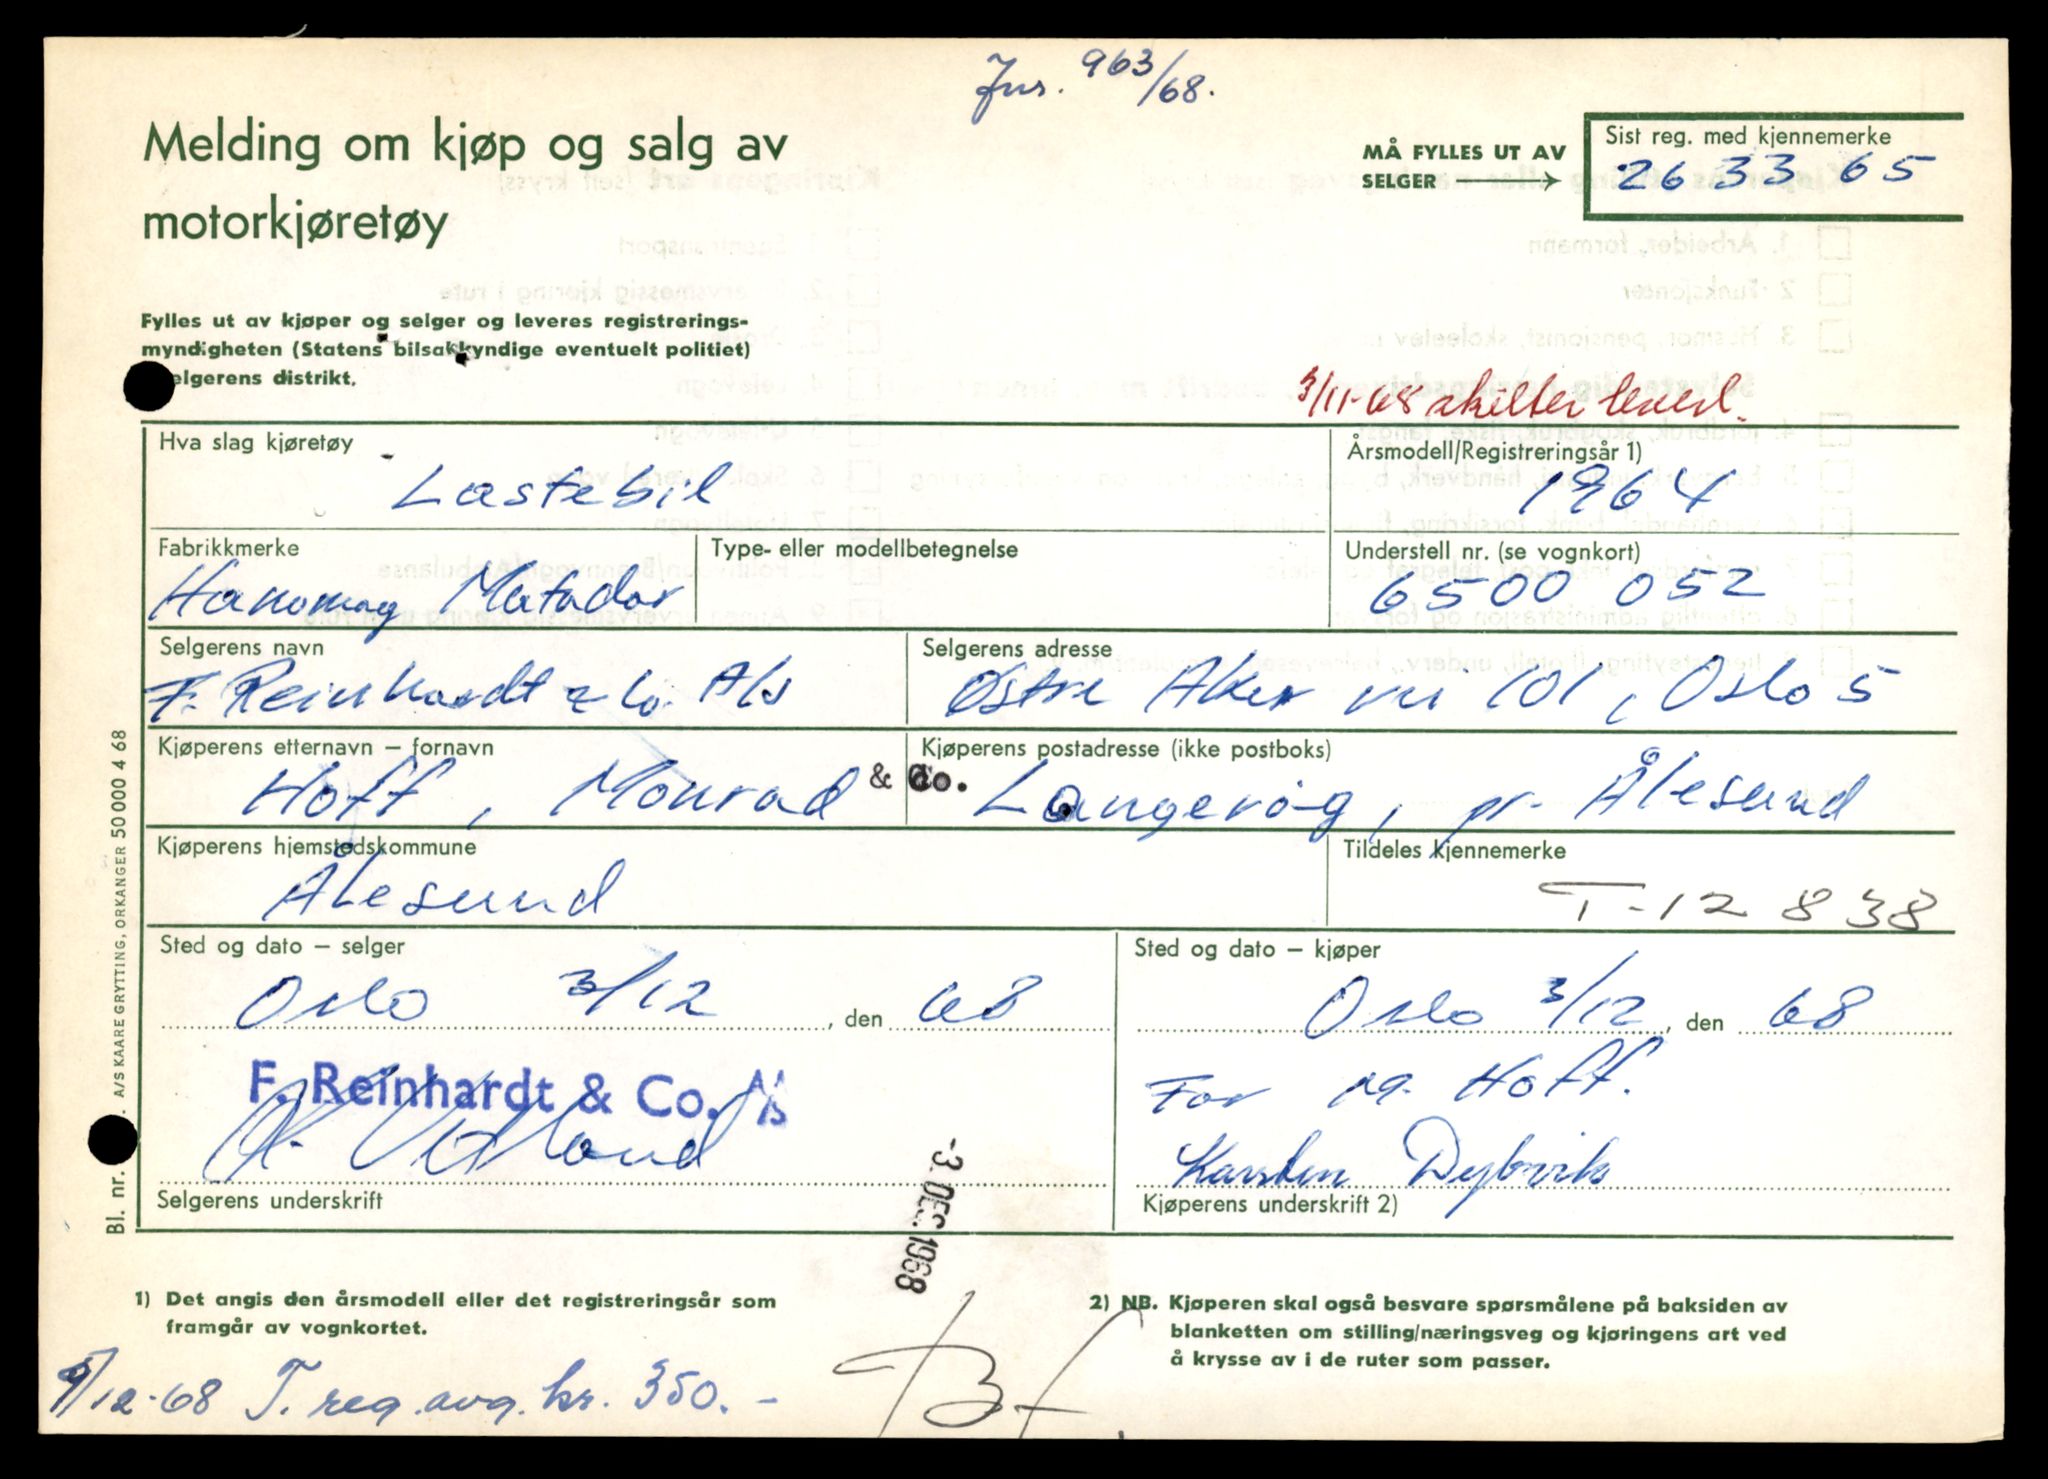 Jnr. 963/68.
Melding om kjøp og salg av
motorkjøretøy
MÅ FYLLES UT AV
SELGER
Sist reg. med kjennemerke
26 33 65
Fylles ut av kjøper og selger og leveres registrerings-
myndigheten (Statens bilsakkyndige eventuelt politiet)
elgerens distrikt.
3/11-68 skilter levert.
Hva slag kjøretøy
Lastebil
Årsmodell/Registreringsår 1)
1964
Fabrikkmerke
Hanomag Matador
Type- eller modellbetegnelse
Understell nr. (se vognkort)
6500 052
Selgerens navn
F. Reinhardt & Co. A/s
Selgerens adresse
Østre Aker vei 101, Oslo 5
Kjøperens etternavn – fornavn
Hoff, Monrad & Co.
Kjøperens postadresse (ikke postboks)
Langevåg, pr. Ålesund
Kjøperens hjemstedskommune
Ålesund
Tildeles kjennemerke
T-12 838
Sted og dato – selger
Oslo 3/12, den 68
Sted og dato – kjøper
Oslo 3/12, den 68
F. Reinhardt & Co. A/s
For M. Hoff.
Karsten Dybvik
Selgerens underskrift
Kjøperens underskrift 2)
-3. DEC. 1968
Bl. nr. A/S KAARE GRYTTING, ORKANGER 50 000 4 68
1) Det angis den årsmodell eller det registreringsår som
framgår av vognkortet.
2) NB. Kjøperen skal også besvare spørsmålene på baksiden av
blanketten om stilling/næringsveg og kjøringens art ved
å krysse av i de ruter som passer.
9/12-68 T. reg. avg. kr. 350.-